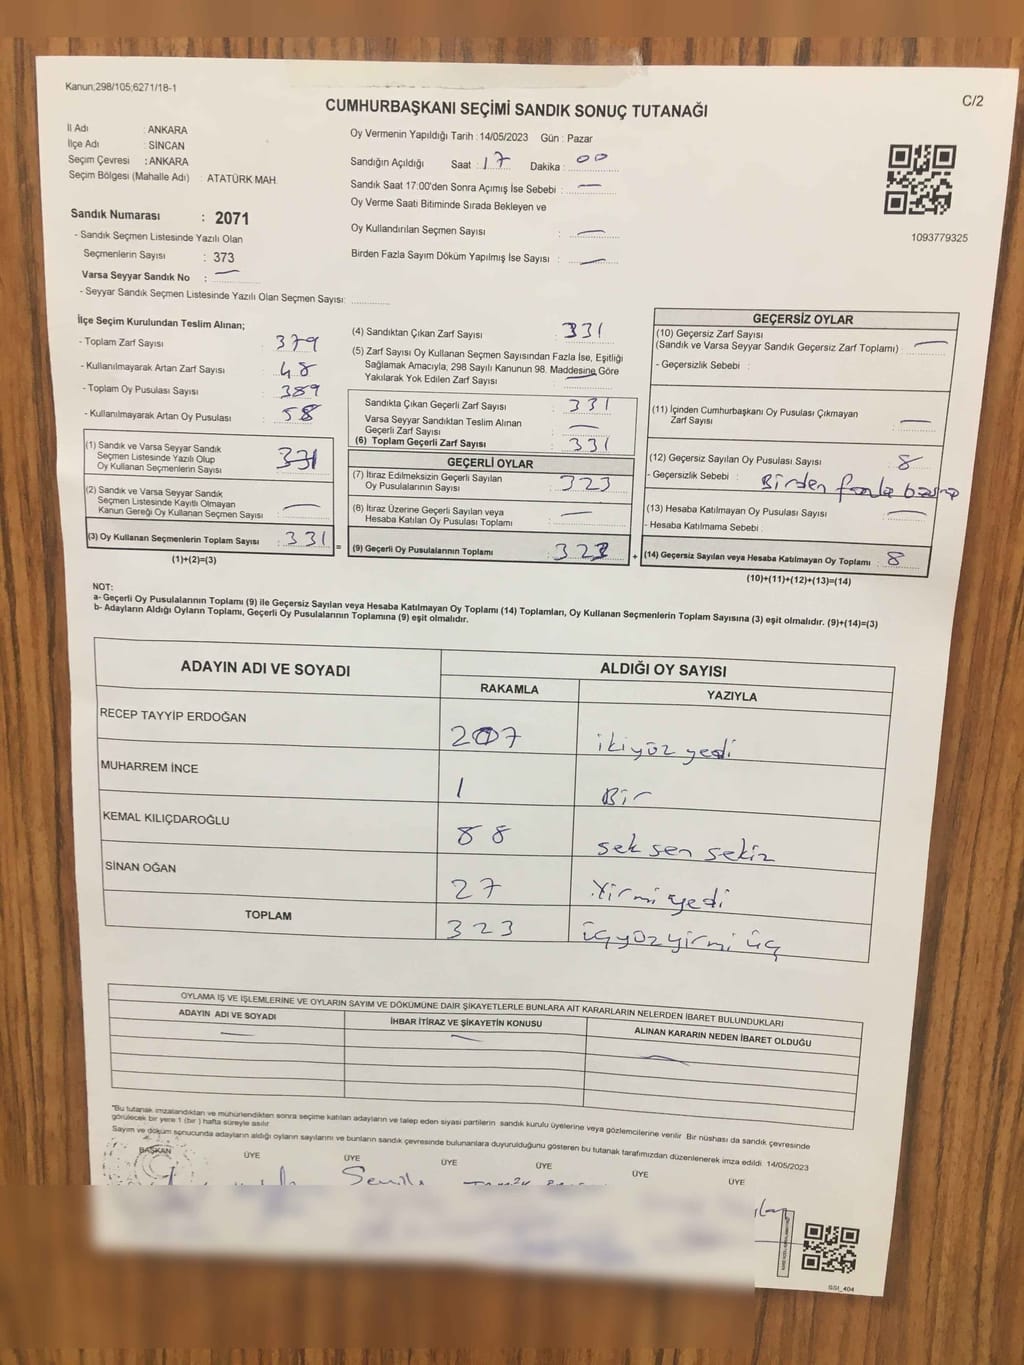 Kanun;298/105;6271/18-1
C/2
CUMHURBAŞKANI SEÇİMİ SANDIK SONUÇ TUTANAĞI
İl Adı : ANKARA
İlçe Adı : SİNCAN
Seçim Çevresi : ANKARA
Seçim Bölgesi (Mahalle Adı) : ATATÜRK MAH.
Oy Vermenin Yapıldığı Tarih : 14/05/2023 Gün : Pazar
Sandığın Açıldığı Saat : 17 Dakika : 00
Sandık Saat 17:00'den Sonra Açımış İse Sebebi : —
Oy Verme Saati Bitiminde Sırada Bekleyen ve
Oy Kullandırılan Seçmen Sayısı : —
Birden Fazla Sayım Döküm Yapılmış İse Sayısı : —
1093779325
Sandık Numarası : 2071
- Sandık Seçmen Listesinde Yazılı Olan
Seçmenlerin Sayısı : 373
Varsa Seyyar Sandık No : —
- Seyyar Sandık Seçmen Listesinde Yazılı Olan Seçmen Sayısı:
İlçe Seçim Kurulundan Teslim Alınan;
- Toplam Zarf Sayısı : 379
- Kullanılmayarak Artan Zarf Sayısı : 48
- Toplam Oy Pusulası Sayısı : 389
- Kullanılmayarak Artan Oy Pusulası : 58
(1) Sandık ve Varsa Seyyar Sandık
Seçmen Listesinde Yazılı Olup
Oy Kullanan Seçmenlerin Sayısı : 331
(2) Sandık ve Varsa Seyyar Sandık
Seçmen Listesinde Kayıtlı Olmayan
Kanun Gereği Oy Kullanan Seçmen Sayısı : —
(3) Oy Kullanan Seçmenlerin Toplam Sayısı : 331
(1)+(2)=(3)
(4) Sandıktan Çıkan Zarf Sayısı : 331
(5) Zarf Sayısı Oy Kullanan Seçmen Sayısından Fazla İse, Eşitliği
Sağlamak Amacıyla, 298 Sayılı Kanunun 98. Maddesine Göre
Yakılarak Yok Edilen Zarf Sayısı : —
Sandıkta Çıkan Geçerli Zarf Sayısı : 331
Varsa Seyyar Sandıktan Teslim Alınan
Geçerli Zarf Sayısı : —
(6) Toplam Geçerli Zarf Sayısı : 331
GEÇERLİ OYLAR
(7) İtiraz Edilmeksizin Geçerli Sayılan
Oy Pusulalarının Sayısı : 323
(8) İtiraz Üzerine Geçerli Sayılan veya
Hesaba Katılan Oy Pusulası Toplamı : —
= (9) Geçerli Oy Pusulalarının Toplamı : 323 +
GEÇERSİZ OYLAR
(10) Geçersiz Zarf Sayısı
(Sandık ve Varsa Seyyar Sandık Geçersiz Zarf Toplamı) : —
- Geçersizlik Sebebi :
(11) İçinden Cumhurbaşkanı Oy Pusulası Çıkmayan
Zarf Sayısı : —
(12) Geçersiz Sayılan Oy Pusulası Sayısı : 8
- Geçersizlik Sebebi : Birden fazla
(13) Hesaba Katılmayan Oy Pusulası Sayısı : —
- Hesaba Katılmama Sebebi :
(14) Geçersiz Sayılan veya Hesaba Katılmayan Oy Toplamı : 8
(10)+(11)+(12)+(13)=(14)
NOT:
a- Geçerli Oy Pusulalarının Toplamı (9) ile Geçersiz Sayılan veya Hesaba Katılmayan Oy Toplamı (14) Toplamları, Oy Kullanan Seçmenlerin Toplam Sayısına (3) eşit olmalıdır. (9)+(14)=(3)
b- Adayların Aldığı Oyların Toplamı, Geçerli Oy Pusulalarının Toplamına (9) eşit olmalıdır.
ADAYIN ADI VE SOYADI
ALDIĞI OY SAYISI
RAKAMLA YAZIYLA
RECEP TAYYİP ERDOĞAN 207 ikiyüz yedi
MUHARREM İNCE 1 Bir
KEMAL KILIÇDAROĞLU 88 seksen sekiz
SİNAN OĞAN 27 Yirmi yedi
TOPLAM 323 üçyüz yirmi üç
OYLAMA İŞ VE İŞLEMLERİNE VE OYLARIN SAYIM VE DÖKÜMÜNE DAİR ŞİKAYETLERLE BUNLARA AİT KARARLARIN NELERDEN İBARET BULUNDUKLARI
ADAYIN ADI VE SOYADI İHBAR İTİRAZ VE ŞİKAYETİN KONUSU ALINAN KARARIN NEDEN İBARET OLDUĞU
— — —
*Bu tutanak imzalandıktan ve mühürlendikten sonra seçime katılan adayların ve talep eden siyasi partilerin sandık kurulu üyelerine veya gözlemcilerine verilir. Bir nüshası da sandık çevresinde
görülecek bir yere 1 (bir ) hafta süreyle asılır.
Sayım ve döküm sonucunda adayların aldığı oyların sayılarını ve bunların sandık çevresinde bulunanlara duyurulduğunu gösteren bu tutanak tarafımızdan düzenlenerek imza edildi. 14/05/2023
BAŞKAN ÜYE ÜYE ÜYE ÜYE ÜYE ÜYE
GSI_404